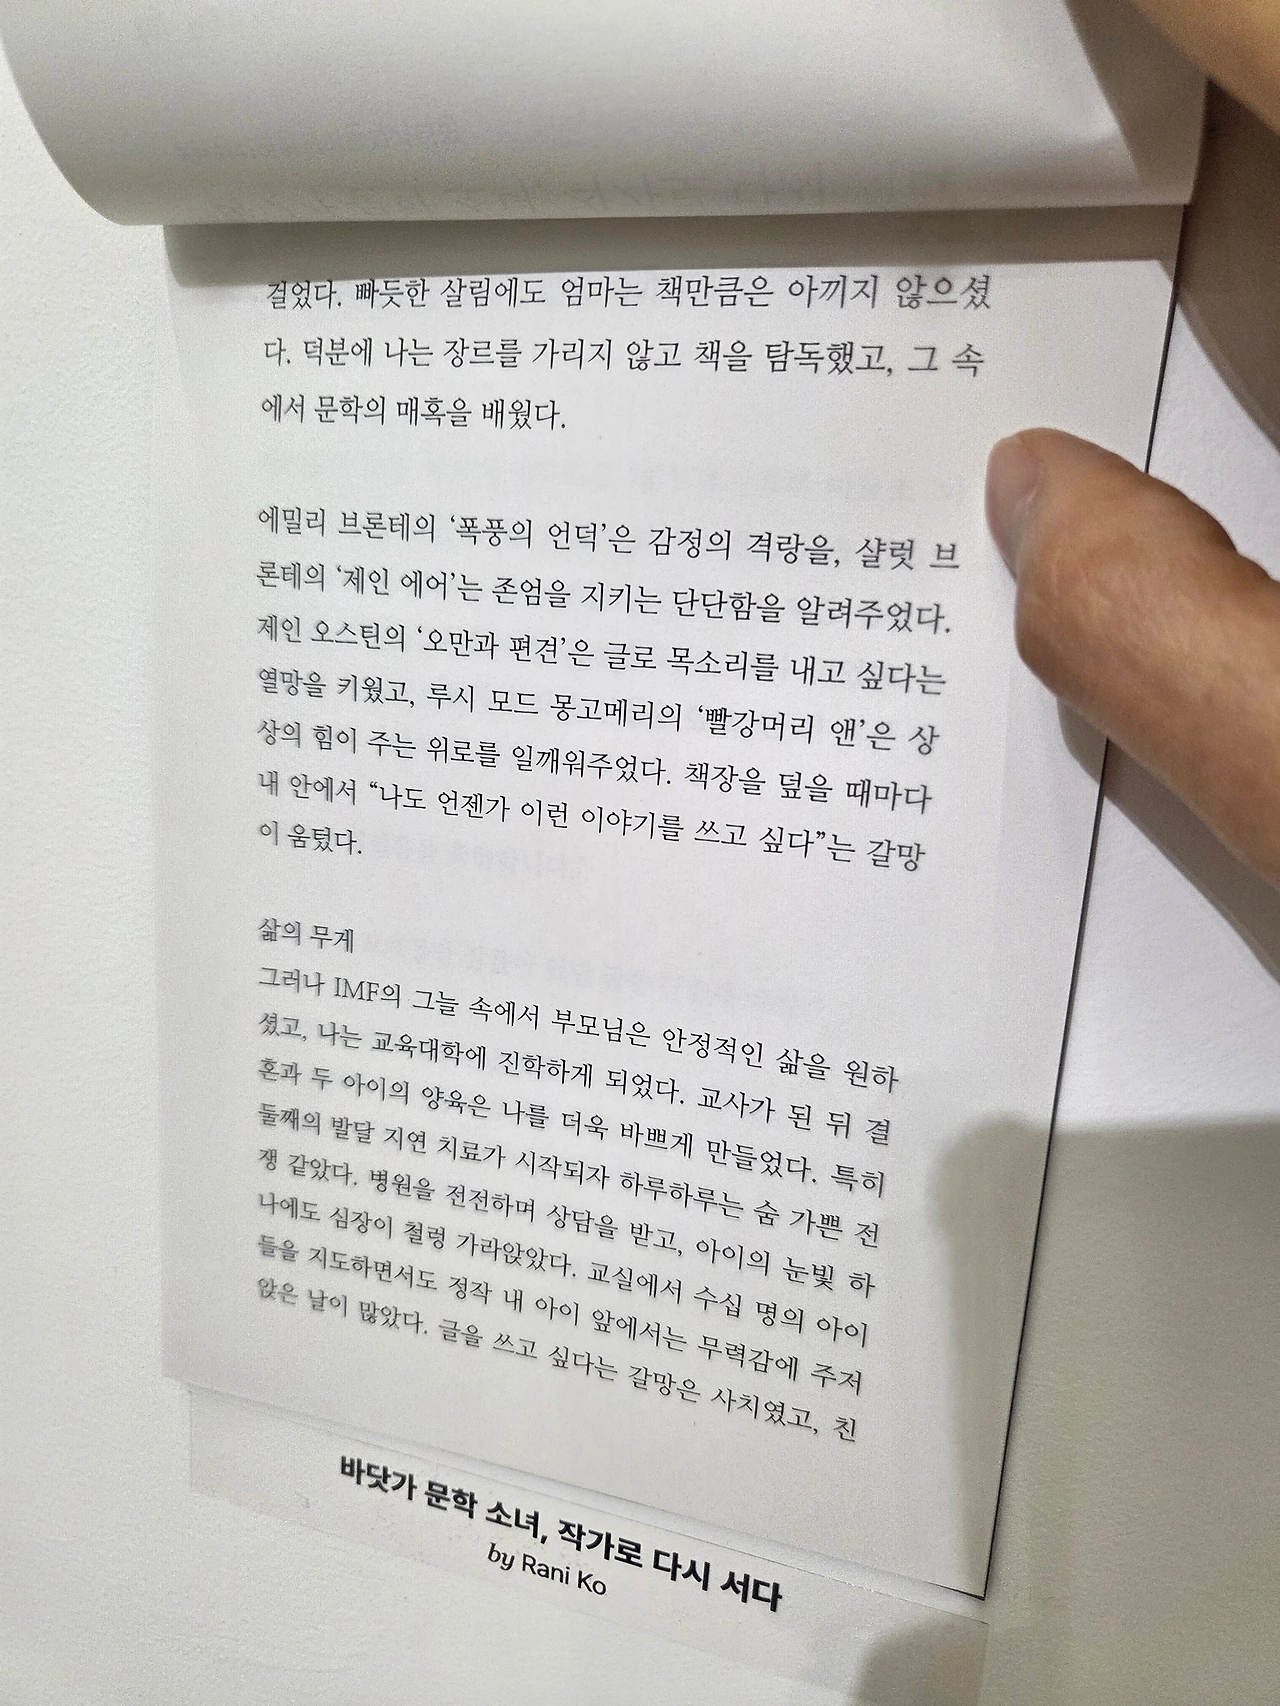 걸었다. 빠듯한 살림에도 엄마는 책만큼은 아끼지 않으셨
다. 덕분에 나는 장르를 가리지 않고 책을 탐독했고, 그 속
에서 문학의 매혹을 배웠다.
에밀리 브론테의 ‘폭풍의 언덕’은 감정의 격랑을, 샬럿 브
론테의 ‘제인 에어’는 존엄을 지키는 단단함을 알려주었다.
제인 오스틴의 ‘오만과 편견’은 글로 목소리를 내고 싶다는
열망을 키웠고, 루시 모드 몽고메리의 ‘빨강머리 앤’은 상
상의 힘이 주는 위로를 일깨워주었다. 책장을 덮을 때마다
내 안에서 “나도 언젠가 이런 이야기를 쓰고 싶다”는 갈망
이 움텄다.
삶의 무게
그러나 IMF의 그늘 속에서 부모님은 안정적인 삶을 원하
셨고, 나는 교육대학에 진학하게 되었다. 교사가 된 뒤 결
혼과 두 아이의 양육은 나를 더욱 바쁘게 만들었다. 특히
둘째의 발달 지연 치료가 시작되자 하루하루는 숨 가쁜 전
쟁 같았다. 병원을 전전하며 상담을 받고, 아이의 눈빛 하
나에도 심장이 철렁 가라앉았다. 교실에서 수십 명의 아이
들을 지도하면서도 정작 내 아이 앞에서는 무력감에 주저
앉은 날이 많았다. 글을 쓰고 싶다는 갈망은 사치였고, 친
바닷가 문학 소녀, 작가로 다시 서다
by Rani Ko